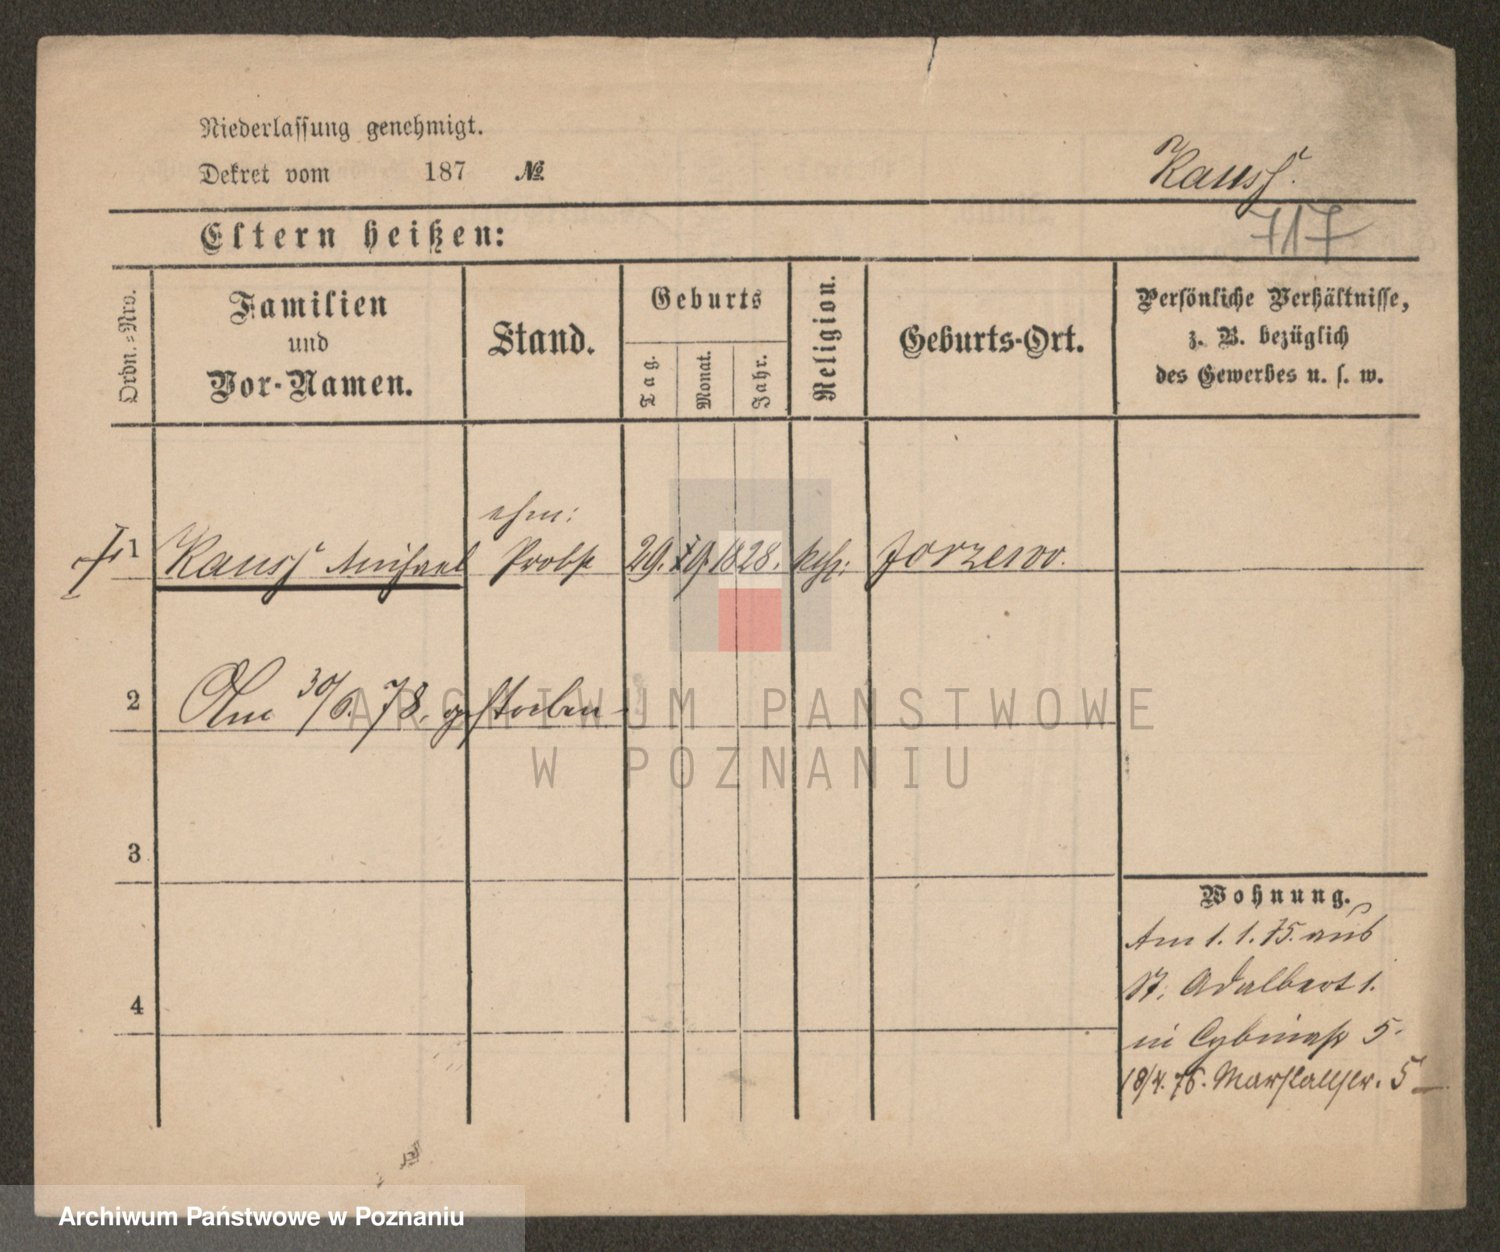 Niederlassung genehmigt.
Dekret vom 187 №
Kauss.
717
Eltern heißen:
Ordn.-Nro.
Familien
und
Vor-Namen.
Stand.
Geburts
Tag.
Monat.
Jahr.
Religion.
Geburts-Ort.
Persönliche Verhältnisse,
z. B. bezüglich
des Gewerbes u. s. w.
1 Kauss Michael
Probst 29. 9. 1828. kth.
2 Am 30/6. 78. gestorben
3
4
Wohnung.
Am 1. 1. 75. aus
St. Adalbert 1.
in Cybinastr 5.
18/4. 76. Marstallstr. 5
ARCHIWUM PAŃSTWOWE
W POZNANIU
Archiwum Państwowe w Poznaniu